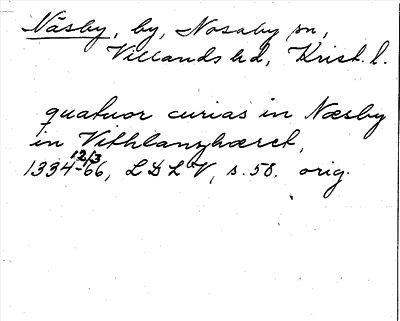 Näsby, by, Nosaby sn,
Villands hd, Krist. l.
quatuor curias in Næsby
in Vithlanzhæret,
12/3
1334-66, L D L V, s. 58. orig.